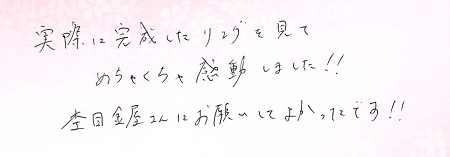 実際に完成したリングを見て
めちゃくちゃ感動しました!!
杢目金屋さんにお願いしてよかったです!!